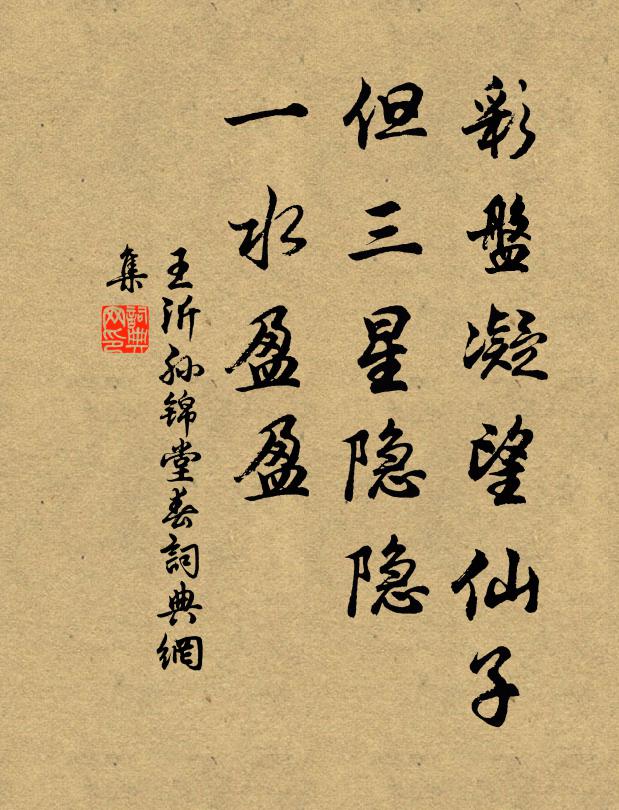 彩盤凝望仙子
但三星隐隐
一水盈盈
王沂孙锦堂春詞典網
集
詞典
网印